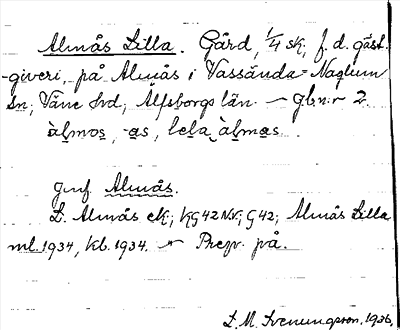 Almås Lilla. Gård, 1/4 sk, f. d. gäst-
giveri, på Almås i Vassända-Naglum
sn, Väne hd, Älfsborgs län. – Gbnr 2.
àl̥mos, -as, lela àlmas.
Jmf. Almås.
L. Almås ek; KG42NV; G42; Almås Lilla
ml. 1934, kb. 1934. – Prep. på.
L. M. Svenungsson, 1936.